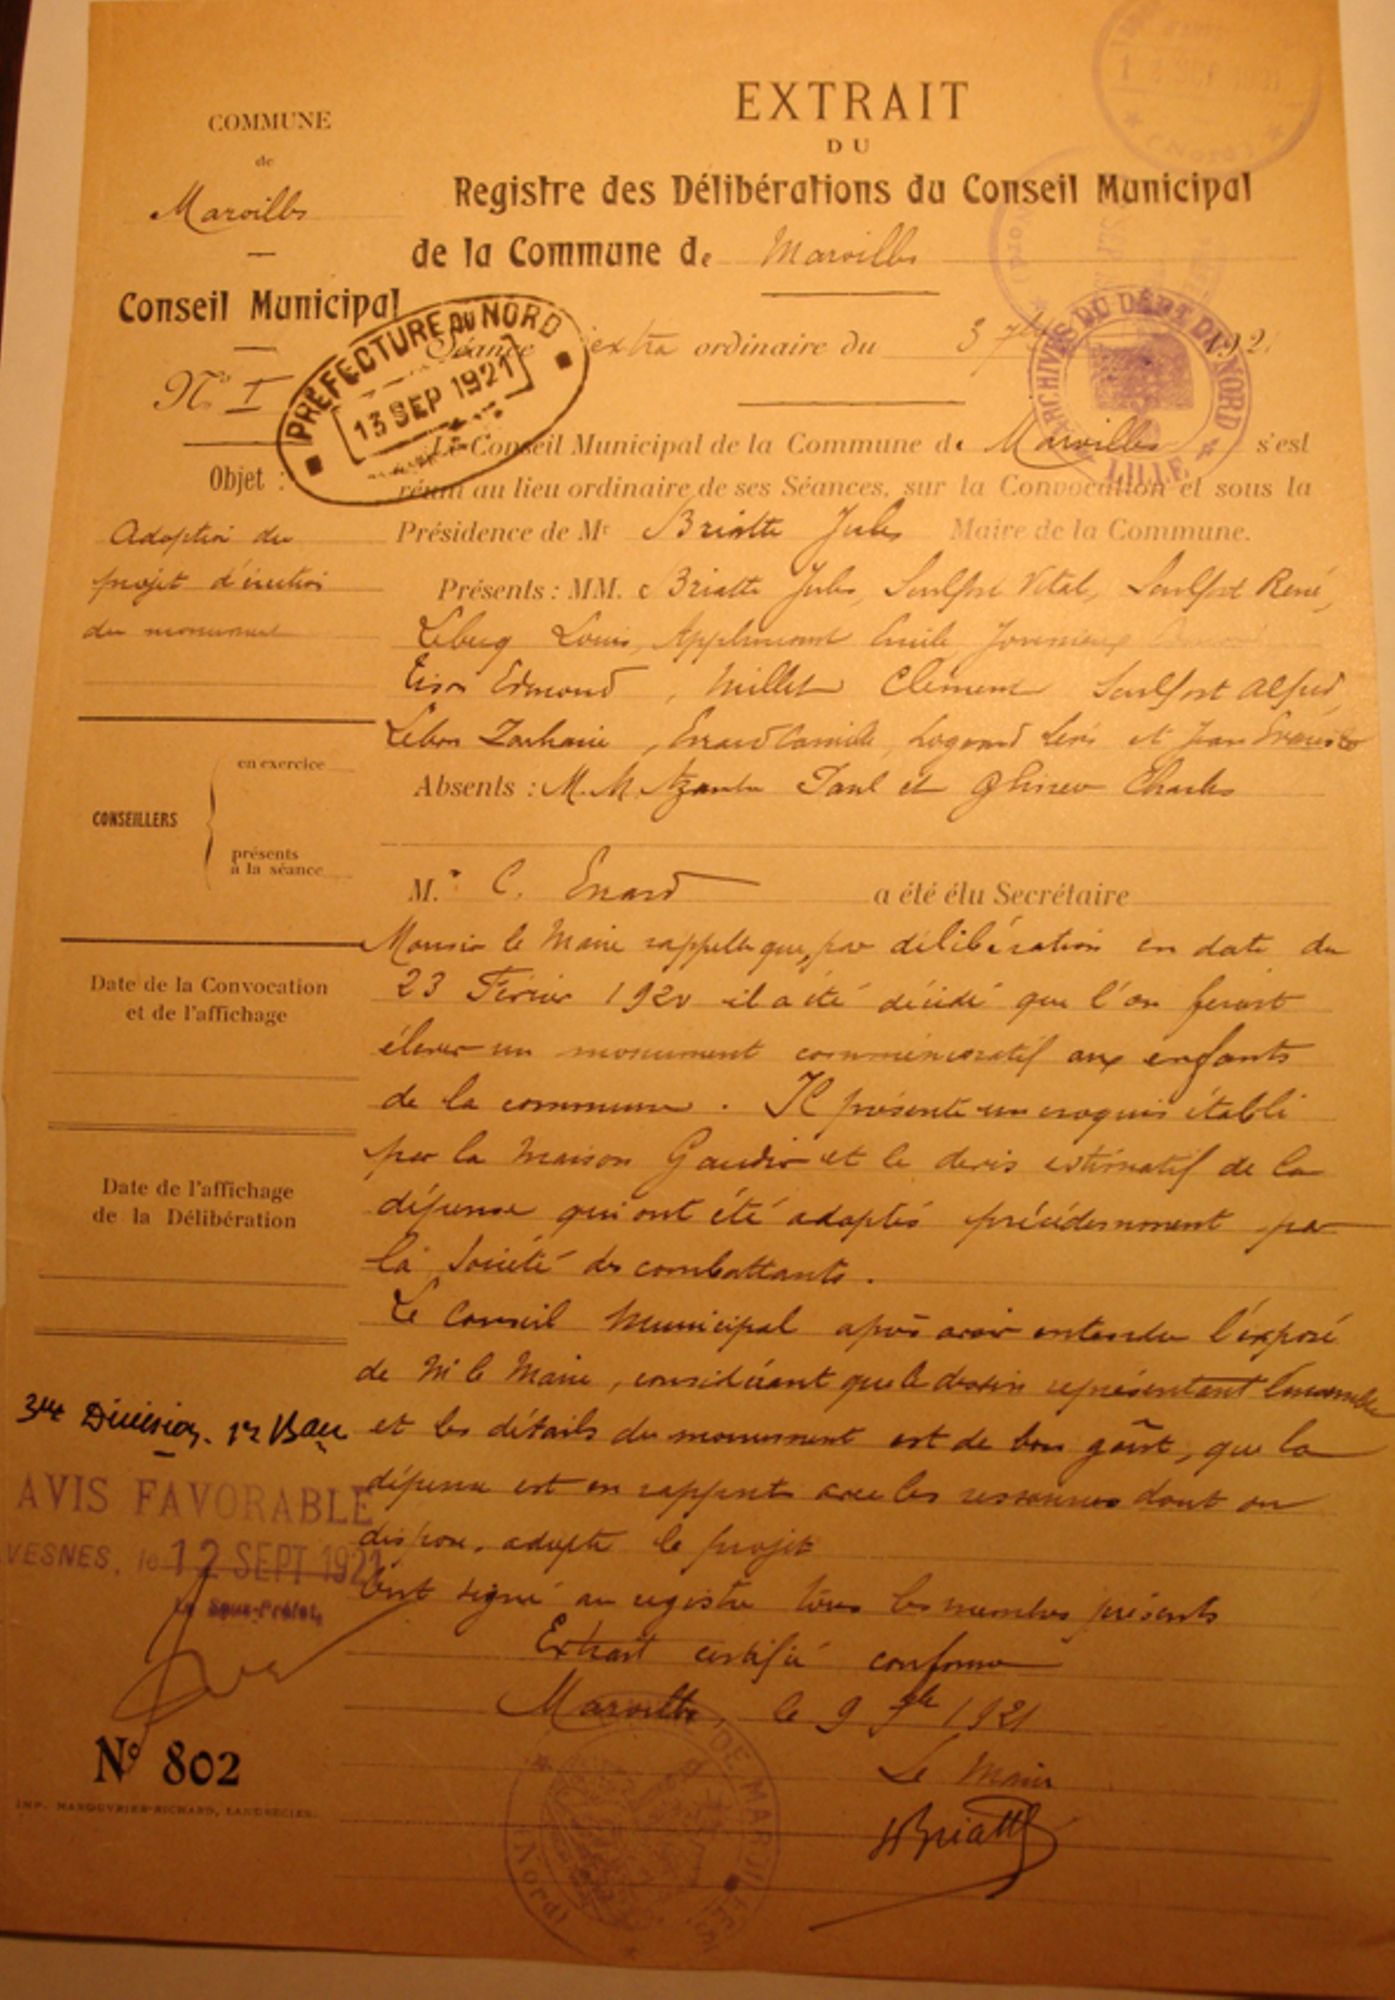 EXTRAIT
DU
Registre des Délibérations du Conseil Municipal
de la Commune de Maroilles
COMMUNE
de
Maroilles
Conseil Municipal
N° I
PREFECTURE DU NORD
13 SEP 1921
Séance extra ordinaire du 3 7bre 192
ARCHIVES DU DÉPT DU NORD
LILLE
(Nord)
Le Conseil Municipal de la Commune de Maroilles s'est
réuni au lieu ordinaire de ses Séances, sur la Convocation et sous la
Présidence de Mr Briatte Jules Maire de la Commune.
Objet :
Adoption du
projet d'érection
du monument
Présents : MM. Briatte Jules, Soulfort Vital, Soulfort René,
Lebecq Louis, Emile
Edmond, Millet Clément Soulfort Alfred,
Lebon Zacharie, Evrard Camille, Legrand et Jean
Absents : M.M. Paul et Charles
CONSEILLERS
en exercice
présents
à la séance
M. C. Evrard a été élu Secrétaire
Monsieur le Maire rappelle que, par délibération en date du
23 Février 1920 il a été décidé que l'on ferait
élever un monument commémoratif aux enfants
de la commune. Il présente un croquis établi
par la Maison Gaudier et le devis estimatif de la
dépense qui ont été adoptés précédemment par
la Société des combattants.
Le Conseil Municipal après avoir entendu l'exposé
de M le Maire, considérant que le dessin représentant l'ensemble
et les détails du monument est de bon goût, que la
dépense est en rapport avec les ressources dont on
dispose, adopte le projet
Ont signé au registre tous les membres présents
Extrait certifié conforme
Maroilles, le 9 7bre 1921
Le Maire
JBriatte
Date de la Convocation
et de l'affichage
Date de l'affichage
de la Délibération
3me Division. 1r Bau
AVIS FAVORABLE
VESNES, le 12 SEPT 1921
Le Sous-Préfet,
N° 802
IMP. MANOUVRIER-RICHARD, LANDRECIES.
DE MAROILLES
(Nord)